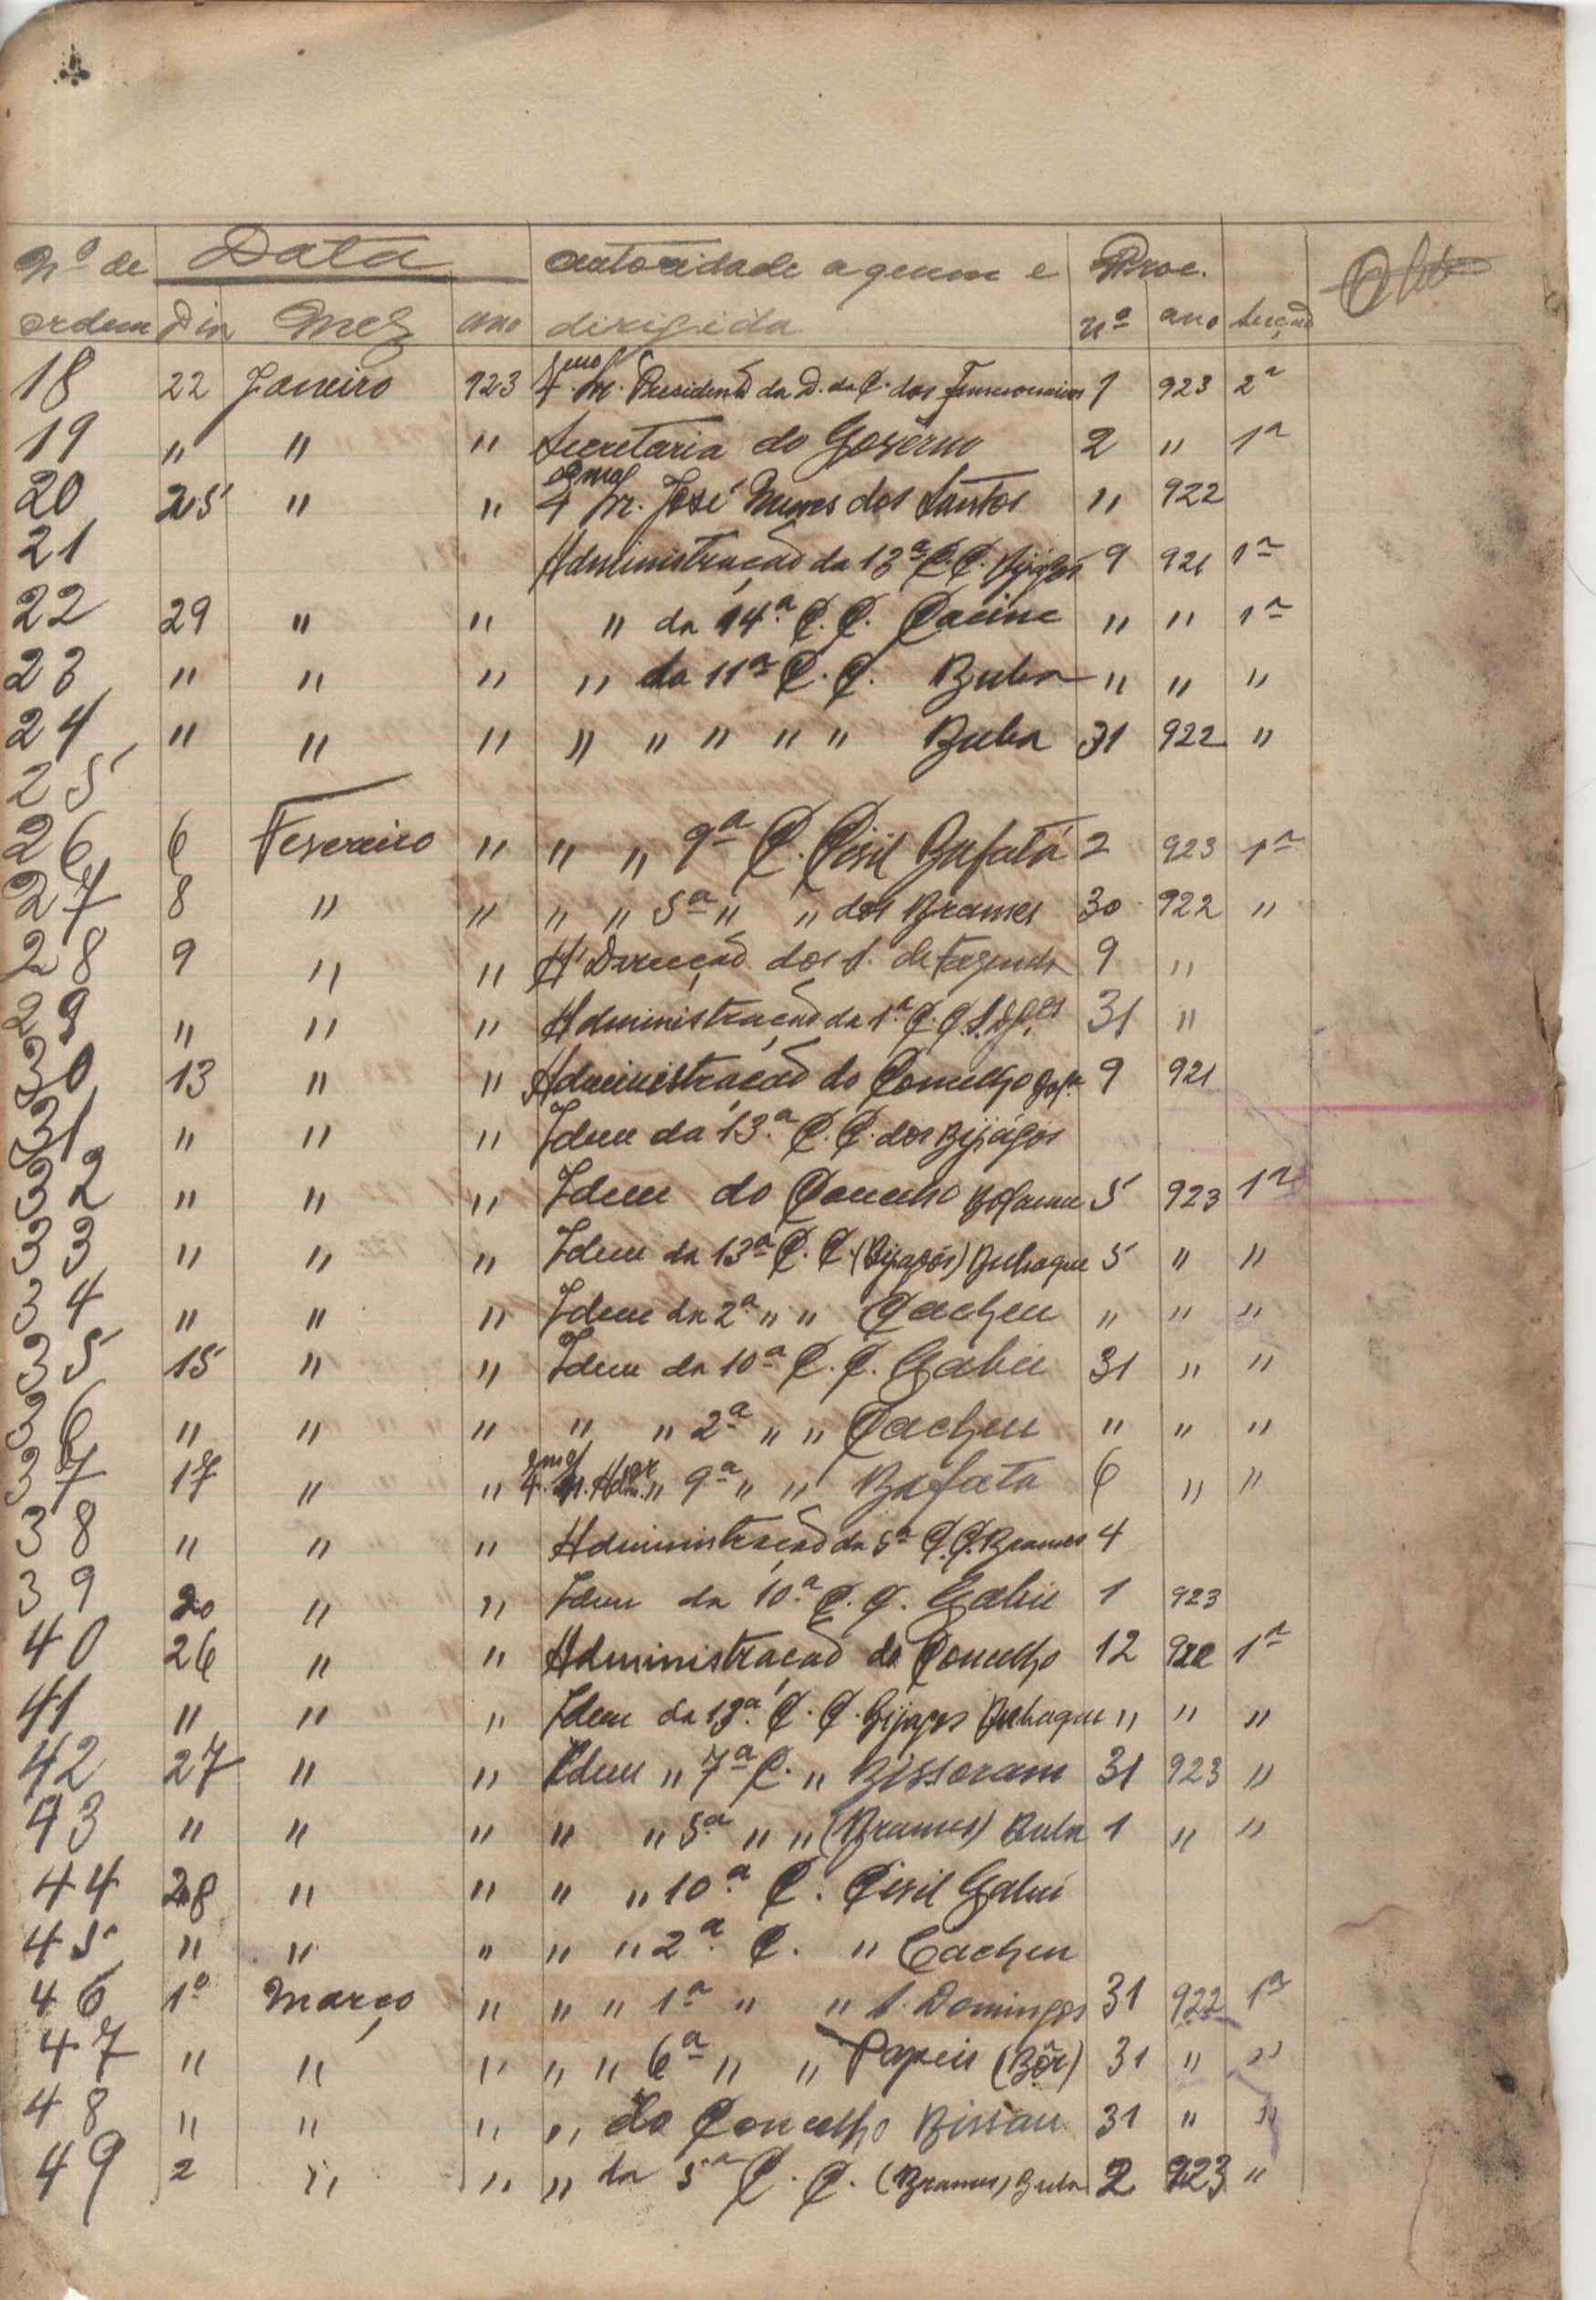 Nº de Data autoridade a quem e Proc.
ordem Dia Mez ano dirigida nº ano Secção
18 22 Janeiro 923 Exmo Sr. Presidente da D. da C. dos Funcionarios 1 923 2ª
19 " " " Secretaria do Govêrno 2 " 1ª
20 25 " " Exmo Sr. José Nunes dos Santos " 922
21 Administração da 13ª C. C. Bijagós 9 921 1ª
22 29 " " " da 14ª C. C. Cacine " " 1ª
23 " " " " da 11ª C. C. Buba " " "
24 " " " " " " " " Buba 31 922 "
25
26 6 Fevereiro " " " 9ª C. Civil Bafatá 2 923 1ª
27 8 " " " " 5ª " " dos Brames 30 922 "
28 9 " " A' Direcção dos S. de Fazenda 9 "
29 " " " Administração da 1ª C. C. S. 31 "
30 13 " " Administração do Concelho 9 921
31 " " " Idem da 13ª C. C. dos Bijágós
32 " " " Idem do Concelho Bolama 5 923 1ª
33 " " " Idem da 13ª C. C. (Bijagós) Bubaque 5 " "
34 " " " Idem da 2ª " " Cacheu " " "
35 15 " " Idem da 10ª C. C. Gabú 31 " "
36 " " " " " 2ª " " Cacheu " " "
37 17 " " Exmo Sr. Admor " 9ª " " Bafata 6 " "
38 " " " Administração da 5ª C. C. Brames 4
39 20 " " Idem da 10ª C. C. Gabú 1 923
40 26 " " Administração do Concelho 12 922 1ª
41 " " " Idem da 13ª C. C. Bijagos Bubaque " " "
42 27 " " Idem " 7ª C. " Bissoram 31 923 "
43 " " " " " 5ª " " (Brames) Bula 1 " "
44 28 " " " " 10ª C. Civil Gabú
45 " " " " " 2ª C. " Cacheu
46 1º Março " " " 1ª " " S. Domingos 31 922 1ª
47 " " " " " 6ª " " Papeis (Bôr) 31 " "
48 " " " " do Concelho Bissau 31 " "
49 2 " " " da 5ª C. C. (Brames) Bula 2 923 "